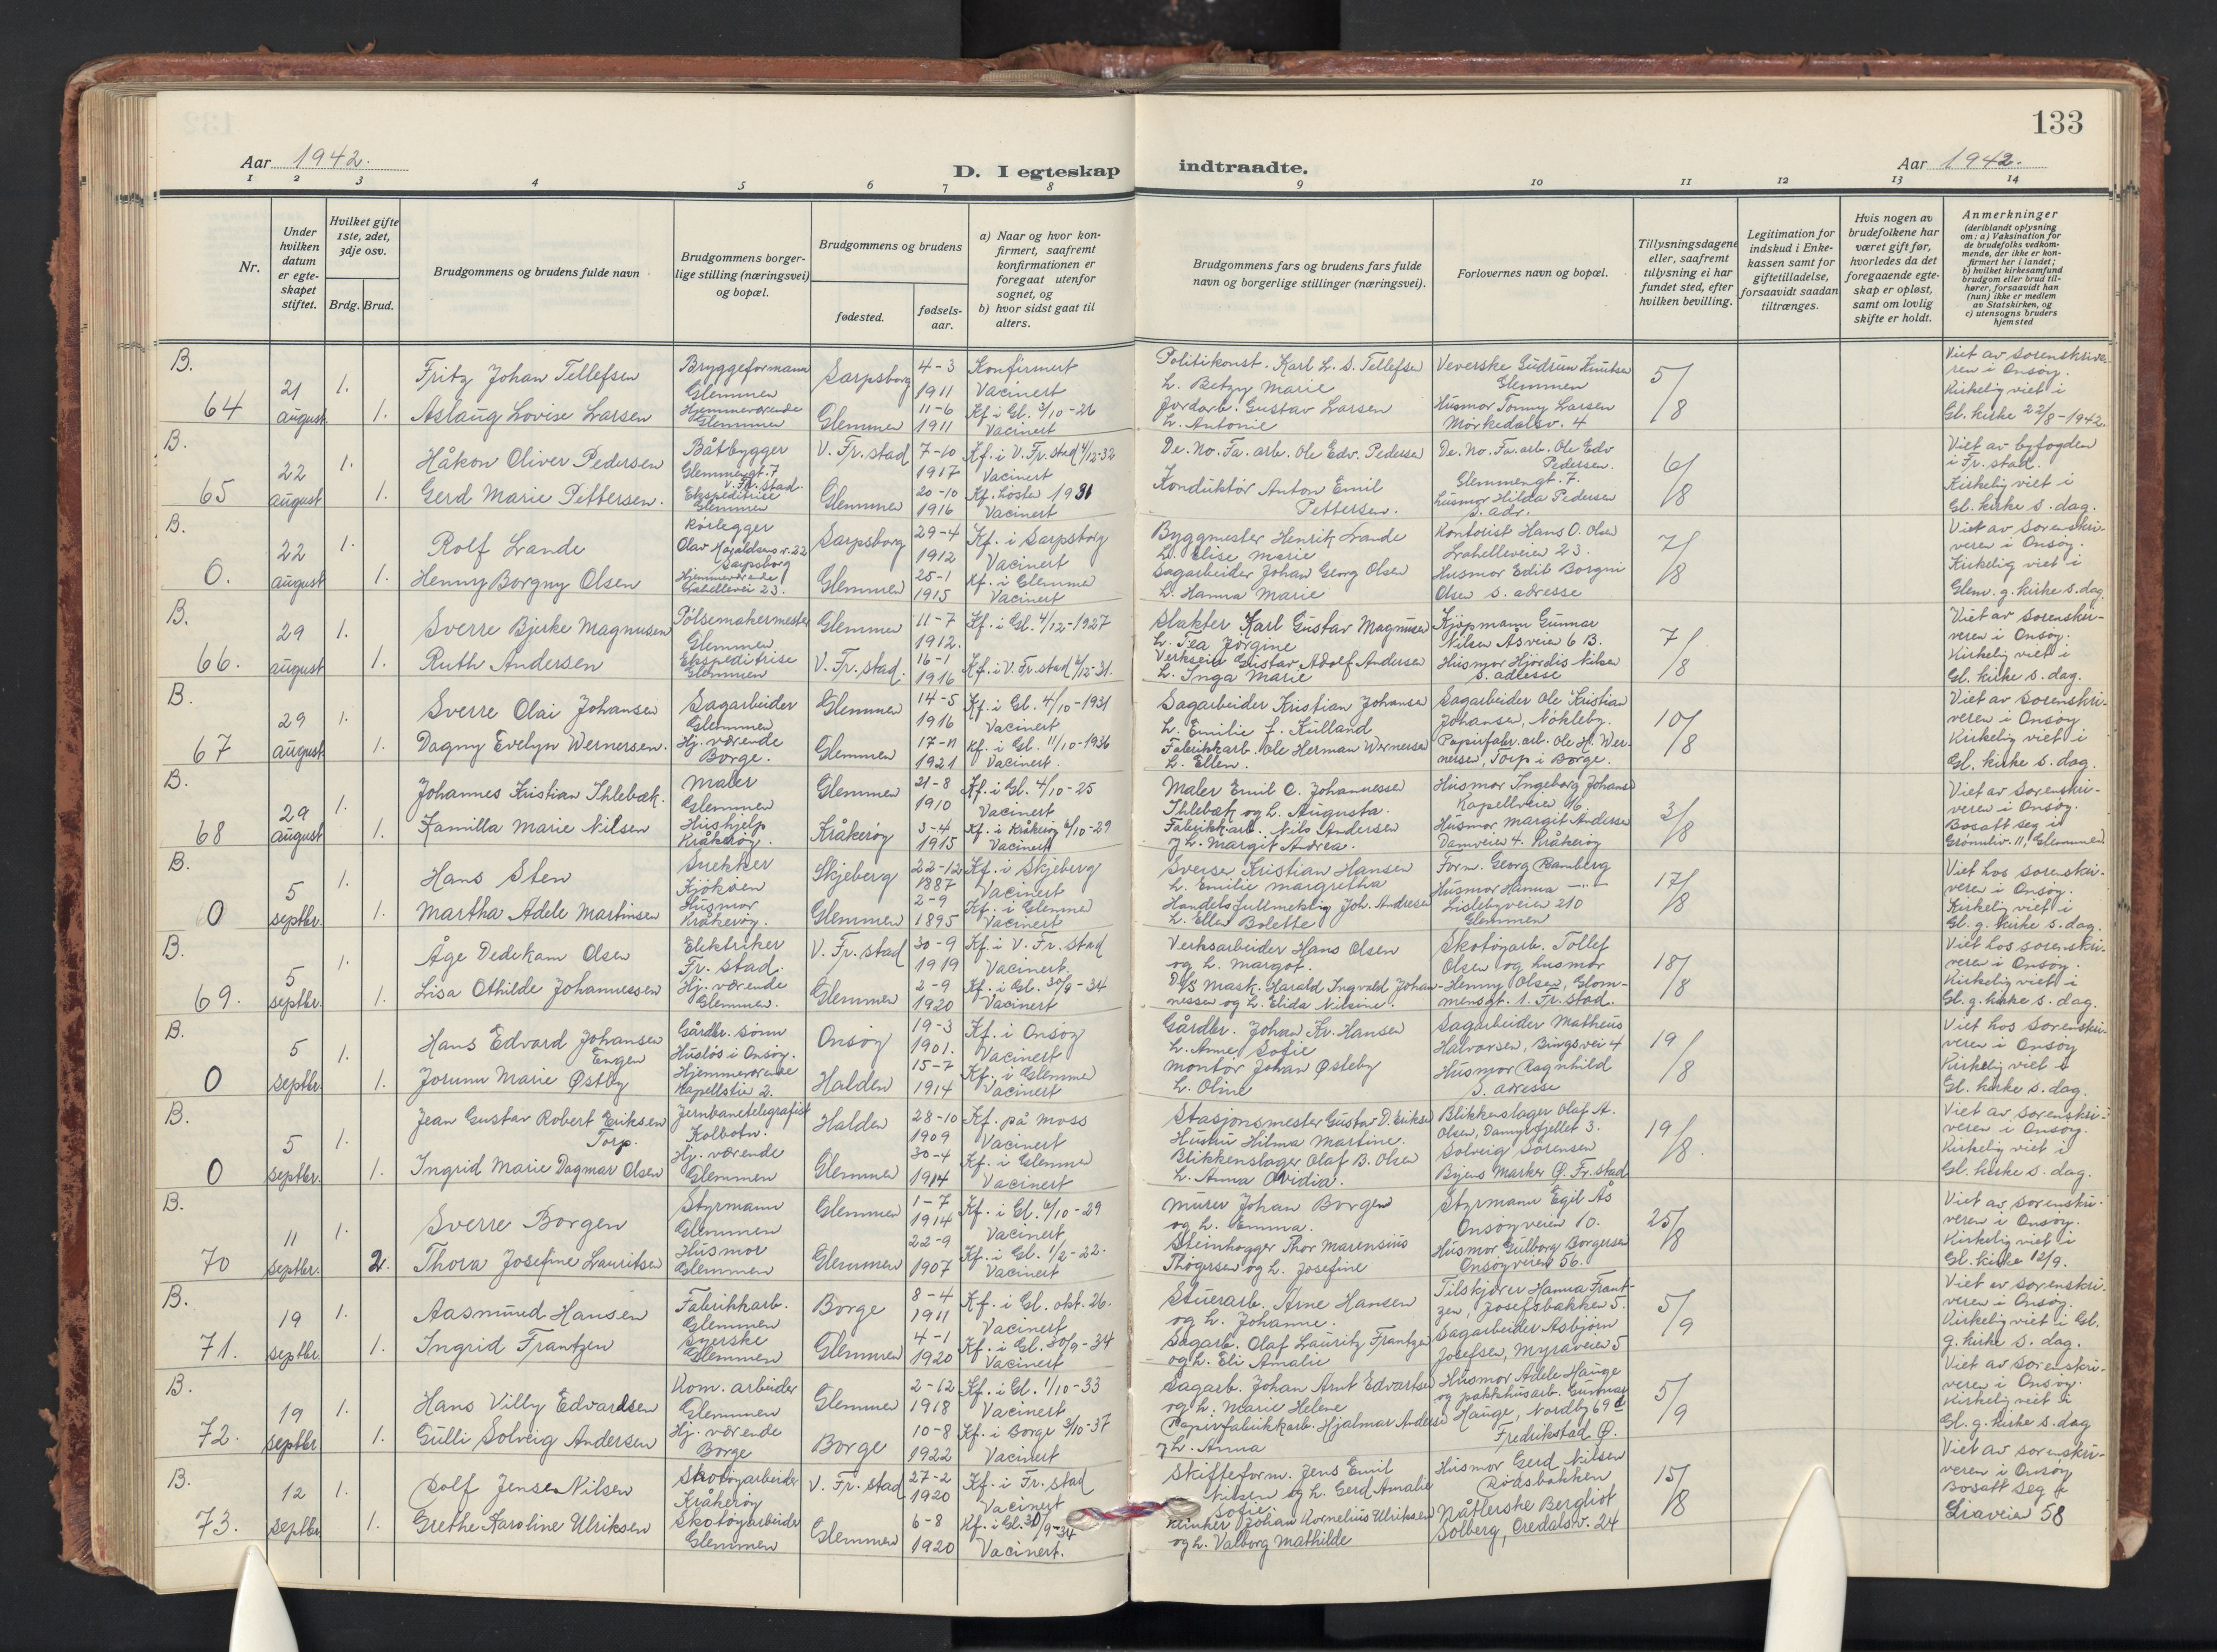 133
Aar 1942.
D. I egteskap indtraadte.
Aar 1942.
1 2 3 4 5 6 7 8 9 10 11 12 13 14
Nr.
Under hvilken datum er egteskapet stiftet.
Hvilket gifte 1ste, 2det, 3dje osv.
Brdg. Brud.
Brudgommens og brudens fulde navn
Brudgommens borgerlige stilling (næringsvei) og bopæl.
Brudgommens og brudens
fødested.
fødselsaar.
a) Naar og hvor konfirmert, saafremt konfirmationen er foregaat utenfor sognet, og
b) hvor sidst gaat til alters.
Brudgommens fars og brudens fars fulde navn og borgerlige stillinger (næringsvei).
Forlovernes navn og bopæl.
Tillysningsdagene eller, saafremt tillysning ei har fundet sted, efter hvilken bevilling.
Legitimation for indskud i Enkekassen samt for giftetilladelse, forsaavidt saadan tiltrænges.
Hvis nogen av brudefolkene har været gift før, hvorledes da det foregaaende egteskap er opløst, samt om lovlig skifte er holdt.
Anmerkninger (deriblandt oplysning om: a) Vaksination for de brudefolks vedkommende, der ikke er konfirmert her i landet; b) hvilket kirkesamfund brudgom eller brud tilhører, forsaavidt han (hun) ikke er medlem av Statskirken, og c) utensogns bruders hjemsted
B. 64 21 august 1. Fritz Johan Tellefsen Bryggeformann Glemmen Sarpsborg 4-3 1911 Konfirmert Vacinert Politikonst. Karl L. S. Tellefsen h. Betzy Marie Veverske Gudrun Knutsen Glemmen 5/8 Viet av Sorenskriveren i Onsøy. Kirkelig viet i Gl. kirke 22/8-1942.
1. Aslaug Lovise Larsen Hjemmeværende Glemmen Glemmen 11-6 1911 Kf. i Gl. 3/10-26 Vacinert Jordarb. Gustav Larsen h. Antonie Husmor Tonny Larsen Mørkedalsv. 4
B. 65 22 august 1. Håkon Oliver Pedersen Båtbygger Glemmengt. 7 V. Fr. stad. V. Fr. stad 7-10 1917 Kf. i V. Fr. stad 4/12-32 Vacinert De. No. Fa. arb. Ole Edv. Pedersen De. No. Fa. arb. Ole Edv Pedersen. Glemmengt. 7. 6/8 Viet av byfogden i Fr. stad. Kirkelig viet i Gl. kirke s. dag.
1. Gerd Marie Pettersen. Ekspeditrise Glemmen Glemmen 20-10 1916 Kf. høsten 1931 Vacinert Konduktør Anton Emil Pettersen. Husmor Hilda Pedersen s. adr.
B. 0. 22 august 1. Rolf Lande Rørlegger Olav Haraldsens v. 22 Sarpsborg Sarpsborg 29-4 1912 Kf. i Sarpsborg Vacinert Byggmester Henrik Lande h. Elise Marie Kontorist Hans O. Olsen Trahelleveien 23. 7/8 Viet av Sorenskriveren i Onsøy. Kirkelig viet i Glem. g. kirke s. dag
1. Henny Borgny Olsen Hjemmeværende Glemmen 25-1 1915 Kf. i Glemmen Vacinert Sagarbeider Johan Georg Olsen h. Hanna Marie Husmor Edit Borgni Olsen s. adresse
B. 66. 29 august 1. Sverre Bjerke Magnusen Pølsemakermester Glemmen Glemmen 11-7 1912. Kf. i Gl. 4/12-1927 Slakter Karl Gustav Magnusen h. Tea Jørgine Kjøpmann Gunnar Nilsen Åsveien 6 B. 7/8 Viet av Sorenskriveren i Onsøy. Kirkelig viet i Gl. kirke s. dag.
1. Ruth Andersen Ekspeditrise Glemmen V. Fr. stad. 16-1 1916 Kf. i V. Fr. stad 6/12-31. Verkseier Gustav Adolf Andersen h. Inga Marie Husmor Hjørdis Nilsen s. adresse
B. 67 29 august 1. Sverre Olai Johansen Sagarbeider Glemmen Glemmen 14-5 1916 Kf. i Gl. 4/10-1931 Vacinert Sagarbeider Kristian Johansen h. Emilie f. Kulland Sagarbeider Ole Kristian Johansen, Nøkleby. 10/8 Viet av Sorenskriveren i Onsøy. Kirkelig viet i Gl. kirke s. dag.
1. Dagny Evelyn Wernersen. Hj. værende Borge. Glemmen 17-11 1921 Kf. i Gl. 11/10-1936 Vacinert. Fabrikkarb. Ole Herman Wernersen h. Ellen. Papirfabr. arb. Ole H. Wernersen, Torp i Borge.
B. 68 29 august 1. Johannes Kristian Ihlebæk. Maler Glemmen Glemmen 21-8 1910 Kf. i Gl. 4/10-25 Vacinert Maler Emil C. Johannessen Ihlebæk og h. Augusta. Husmor Ingeborg Johansen Kapellveien 16. 3/8 Viet av Sorenskriveren i Onsøy. Bosatt seg i Grønnliv. 11, Glemmen
1. Kamilla Marie Nilsen Hushjelp Kråkerøy. Kråkerøy 3-4 1915 Kf. i Kråkerøy 6/10-29 Vacinert Fabrikkarb. Nils Andersen og h. Margit Andrea. Husmor Margit Andersen Damveien 4. Kråkerøy
B. 0 5 septbr. 1. Hans Sten Snekker Kjøkøen Skjeberg 22-12 1887 Kf. i Skjeberg Vacinert Sveiser Kristian Hansen h. Emilie Margretha Form. Georg Ramberg 17/8 Viet hos sorenskriveren i Onsøy. Kirkelig viet i Gl. g. kirke s. dag.
1. Martha Adele Martinsen Husmor Kråkerøy. Glemmen 2-9 1895 Kf. i Glemmen Vacinert Handelsfullmektig Joh. Andresen h. Ellen Bolette Husmor Hanna Lislebyveien 210 Glemmen
B. 69. 5 septbr. 1. Åge Dedekam Olsen Elektriker Fr. stad. V. Fr. stad 30-9 1919 Kf. i V. Fr. stad Vacinert. Verksarbeider Hans Olsen og h. Margot. Skotøyarb. Tollef Olsen og husmor 18/8 Viet hos sorenskriveren i Onsøy. Kirkelig viet i Gl. g. kirke s. dag.
1. Lisa Othilde Johannessen Hj. værende Glemmen. Glemmen 2-9 1920 Kf. i Gl. 30/9-34 Vacinert D/S Mask. Harald Ingvald Johannessen og h. Elida Nilsine. Henny Olsen, Glommensgt. 1. Fr. stad.
B. 0 5 septbr. 1. Hans Edvard Johansen Engen Gårdbr. sønn Husløs i Onsøy. Onsøy 19-3 1901. Kf. i Onsøy Vacinert Gårdbr. Johan Kr. Hansen h. Anne Sofie Sagarbeider Matheus Halvorsen, Bingsvei 4 19/8 Viet hos Sorenskriveren i Onsøy Kirkelig viet i Gl. kirke s. dag.
1. Jorunn Marie Østby Hjemmeværende Kapellstien 2. Halden 15-7 1914 Kf. i Glemmen Vacinert Montør Johan Østeby h. Oline Husmor Ragnhild s. adresse
B. 0 5 septbr. 1. Jean Gustav Robert Eriksen Torp. Jernbanetelegrafist Kolbotn. Halden 28-10 1909 Kf. på Moss Vacinert Stasjonsmester Gustav D. Eriksen Hustru Hilma Martine. Blikkenslager Olaf A. Olsen, Damyrfjellet 3. 19/8. Viet av sorenskriveren i Onsøy. Kirkelig viet i Gl. kirke s. dag.
1. Ingrid Marie Dagmar Olsen Hj. værende Glemmen Glemmen 30-4 1914 Kf. i Glemmen Vacinert Blikkenslager Olaf B. Olsen h. Anna Ovidia. Solveig Sørensen Byens Marker Ø. Fr. stad
B. 70 11 septbr. 1. Sverre Borgen Styrmann Glemmen Glemmen 1-7 1914 Kf. i Gl. 6/10-29 Vacinert Murer Johan Borgen og h. Emma. Styrmann Egil Ås Onsøyveien 10. 25/8 Viet av sorenskriveren i Onsøy. Kirkelig viet i Gl. kirke 12/9.
2. Thora Josefine Lauritsen Husmor Glemmen Glemmen 22-9 1907 Kf. i Gl. 1/2-22. Vacinert Steinhogger Thor Marensius Thøgersen og h. Josefine Husmor Gulborg Borgersen Onsøyveien 56.
B. 71. 19 septbr. 1. Aasmund Hansen Fabrikkarb. Glemmen Borge 8-4 1911 Kf. i Gl. okt. 26. Vacinert Stuerarb. Arne Hansen og h. Johanne. Tilskjærer Hanna Frantzen, Josefsbakken 5. 5/9 Viet av sorenskriveren i Onsøy. Kirkelig viet i Gl. g. kirke s. dag.
1. Ingrid Frantzen Syerske Glemmen Glemmen 4-1 1920 Kf. i Gl. 30/9-34 Vacinert Sagarb. Olaf Lauritz Frantzen og h. Eli Amalie Sagarbeider Asbjørn Josefsen, Myraveien 5
B. 72. 19 septbr 1. Hans Villy Edvardsen Kom. arbeider Glemmen Glemmen 2-12 1918 Kf. i Gl. 1/10-33 Vacinert Sagarb. Johan Arnt Edvartsen og h. Marie Helene Husmor Adele Hauge og pakkhusarb. Gunnar Hauge, Nordby 69 d Fredrikstad Ø. 5/9 Viet av sorenskriveren i Onsøy. Kirkelig viet i Gl. g. kirke s. dag
1. Gulli Solveig Andersen Hj. værende Borge Borge 10-8 1922 Kf. i Borge 3/10-37 Vacinert Papirfabrikkarb. Hjalmar Andersen og h. Anna
B. 73. 12 septbr 1. Rolf Jensen Nilsen Skotøyarbeider Kråkerøy V. Fr. stad 27-2 1920 Kf. i Fr. stad Vacinert Skifteform. Jens Emil Nilsen og h. Gerd Amalie Sofie Husmor Gerd Nilsen Rødsbakken 15/8 Viet av sorenskriveren i Onsøy Bosatt seg i Liaveien 58
1. Grethe Karoline Ulriksen Skotøyarbeider Glemmen Glemmen 6-8 1920 Kf. i Gl. 30/9-34 Vacinert. Klinker Johan Kornelius Ulriksen og h. Valborg Mathilde Nåtlerske Bergliot Solberg, Oredalsv. 24